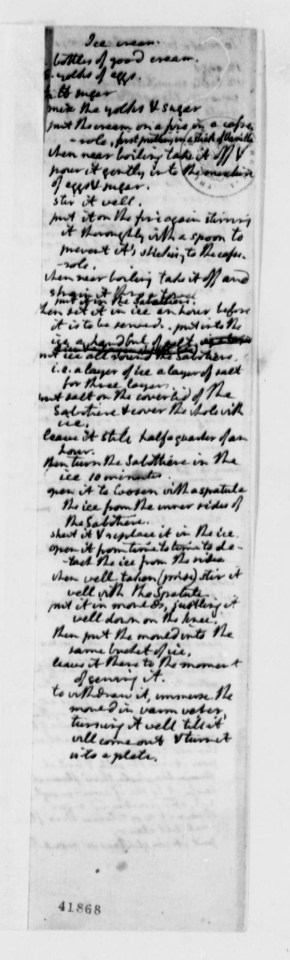 Ice cream.
bottles of good cream.
yolks of eggs.
sugar
mix the yolks & sugar
put the cream on a fire in a casse-
-role, first putting in a stick of Vanilla.
when near boiling take it off &
pour it gently into the mixture
of eggs & sugar.
stir it well.
put it on the fire again stirring
it thoroughly with a spoon to
prevent it's sticking to the casse-
-role.
when near boiling take it off and
strain it
put it in the Sabottiere.
then set it in ice an hour before
it is to be served. put into the
ice a handful of salt
put ice all around the Sabottiere.
i.e. a layer of ice a layer of salt
for three layers.
put salt on the coverlid of the
Sabotiere & cover the whole with
ice.
leave it still half a quarter of an
hour.
then turn the Sabottiere in the
ice 10 minutes
open it to loosen with a spatula
the ice from the inner sides of
the Sabotiere.
shut it & replace it in the ice
open it from time to time to de-
-tach the ice from the sides
when well taken (prise) stir it
well with the Spatula.
put it in moulds, justling it
well down on the knee.
then put the mould into the
same bucket of ice.
leave it there to the moment
of serving it.
to withdraw it, immerse the
mould in warm water,
turning it well till it
will come out & turn it
into a plate.
41868